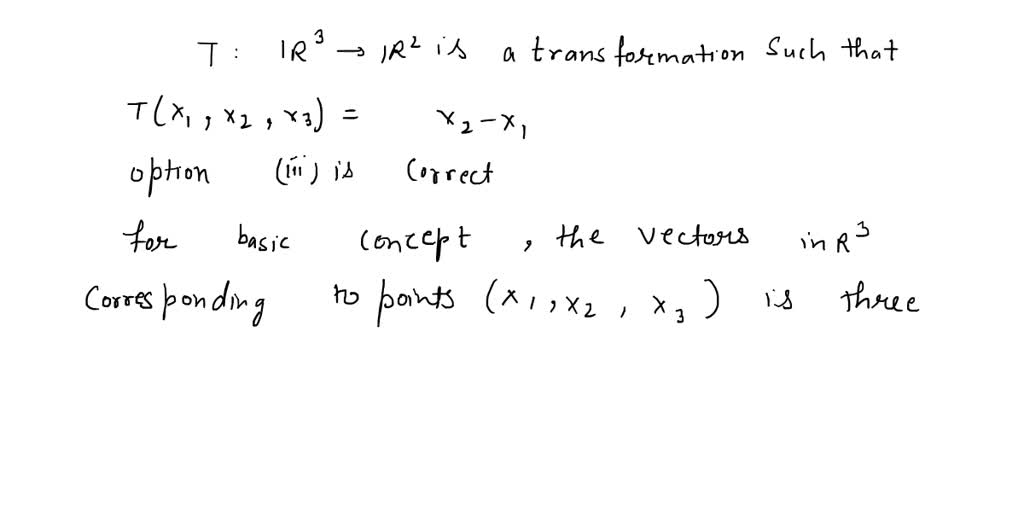 T : IR³ → IR² is a transformation Such that
T(x₁, x₂, x₃) = x₂-x₁
option (iii) is Correct
for basic concept, the vectors in R³
Corresponding to points (x₁, x₂, x₃) is three